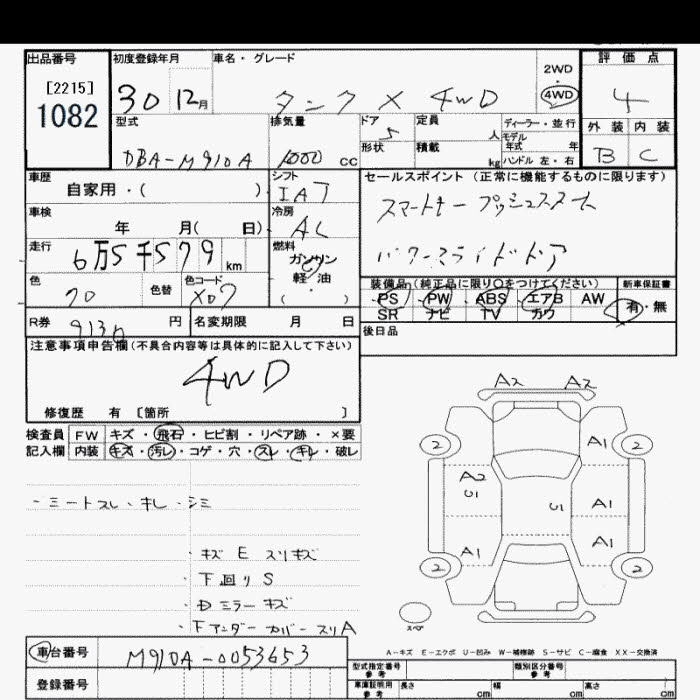 出品番号
[2215]
1082
初度登録年月
30 12月
車名・グレード
タンク X 4WD
2WD
・
4WD
評価点
4
型式
DBA-M910A
排気量
1000 cc
ドア
5
形状
定員
人
積載
kg
ディーラー・並行
モデル
年式 年
ハンドル 左・右
外装 内装
B C
車歴
自家用・( )
シフト
IAT
車検
年 月( 日)
冷房
AC
走行
6万5千579
km
燃料
ガソリン
軽・油
( ・ )
色
色替
色コード
X07
セールスポイント (正常に機能するものに限ります)
スマートキー プッシュスタート
パワースライドドア
装備品(純正品に限り○をつけてください)
PS PW ABS エアB AW
SR ナビ TV カワ
新車保証書
有・無
R券
円
名変期限 月 日
後日品
注意事項申告欄(不具合内容等は具体的に記入して下さい)
4WD
修復歴 有 〔箇所 〕
検査員
記入欄
FW キズ・飛石・ヒビ割・リペア跡・×要
内装 キズ・汚レ・コゲ・穴・スレ・キレ・破レ
・シートスレ・キレ・シミ
・キズ E スリキズ
・下回り S
・Dミラーキズ
・下アンダーカバースリA
A2 A2
2 2
A1
A2
U1 U1
A1
A1 A1
2 2
スペア
A-キズ E-エクボ U-凹み W-補修跡 S-サビ C-腐食 XX-交換済
車台番号
M910A-0053653
登録番号
型式指定番号
参考
類別区分番号
参考
車庫証明用
参考
長さ cm
幅 cm
高さ cm